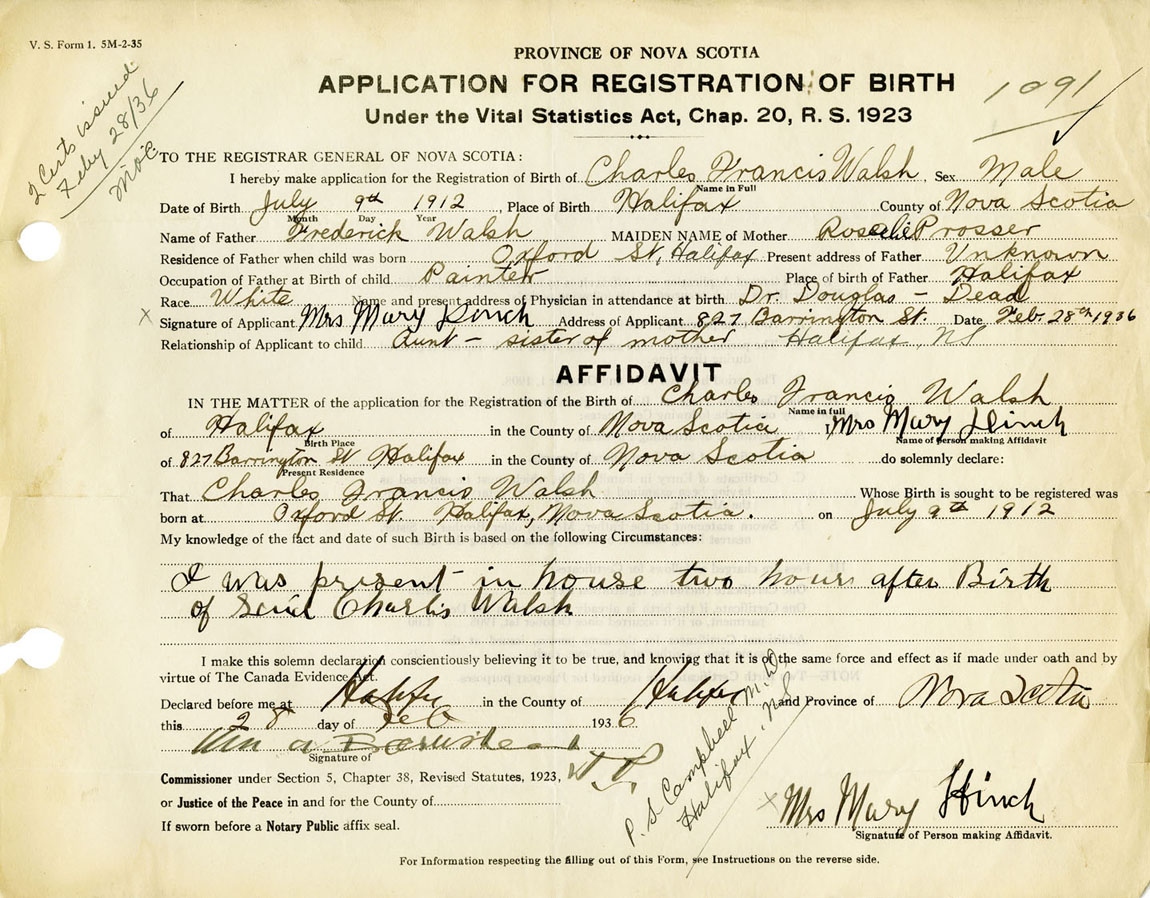 V. S. Form 1. 5M-2-35
2 Certs issued
Feby 28/36
PROVINCE OF NOVA SCOTIA
APPLICATION FOR REGISTRATION OF BIRTH
1091
Under the Vital Statistics Act, Chap. 20, R. S. 1923
TO THE REGISTRAR GENERAL OF NOVA SCOTIA:
I hereby make application for the Registration of Birth of Charles Francis Walsh, Sex Male
Name in Full
Date of Birth July 9th 1912, Place of Birth Halifax County of Nova Scotia
Month Day Year
Name of Father Frederick Walsh MAIDEN NAME of Mother Rosalie Prosser
Residence of Father when child was born Oxford St, Halifax Present address of Father Unknown
Occupation of Father at Birth of child Painter Place of birth of Father Halifax
Race White Name and present address of Physician in attendance at birth Dr. Douglas - Dead
x Signature of Applicant Mrs Mary Hinch Address of Applicant 827 Barrington St. Date Feb. 28th 1936
Relationship of Applicant to child Aunt - sister of mother Halifax, NS
AFFIDAVIT
IN THE MATTER of the application for the Registration of the Birth of Charles Francis Walsh
Name in full
of Halifax in the County of Nova Scotia I, Mrs Mary Hinch
Birth Place Name of person making Affidavit
of 827 Barrington St Halifax in the County of Nova Scotia do solemnly declare:
Present Residence
That Charles Francis Walsh Whose Birth is sought to be registered was
born at Oxford St. Halifax, Nova Scotia. on July 9th 1912
My knowledge of the fact and date of such Birth is based on the following Circumstances:
I was present in house two hours after Birth
of Charles Walsh
I make this solemn declaration conscientiously believing it to be true, and knowing that it is of the same force and effect as if made under oath and by
virtue of The Canada Evidence Act.
Declared before me at Halifax in the County of Halifax and Province of Nova Scotia
this 28 day of Feb 1936
Signature of
Commissioner under Section 5, Chapter 38, Revised Statutes, 1923, J.P.
or Justice of the Peace in and for the County of
If sworn before a Notary Public affix seal.
P. S. Campbell M.D
Halifax, NS
x Mrs Mary Hinch
Signature of Person making Affidavit.
For Information respecting the filling out of this Form, see Instructions on the reverse side.